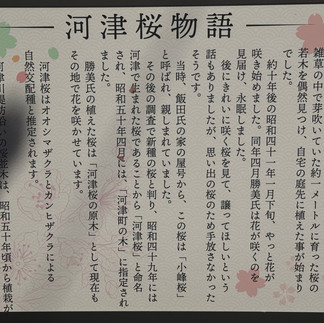 河津桜物語
雑草の中で芽吹いていた約一メートルに育った桜の
若木を偶然見つけ、自宅の庭先に植えた事が始まり
でした。
約十年後の昭和四十一年一月下旬、やっと花が
咲き始めました。同年四月勝美氏は花が咲くのを
見届け、永眠しました。
後にきれいに咲く桜を見て、譲ってほしいという
話もありましたが、思い出の桜のため手放さなかった
そうです。
当時、飯田氏の家の屋号から、この桜は「小峰桜」
と呼ばれ、親しまれていました。
その後の調査で新種の桜と判り、昭和四十九年には
河津で生まれた桜であることから「河津桜」と命名
され、昭和五十年四月には、「河津町の木」に指定され
ました。
勝美氏の植えた桜は「河津桜の原木」として現在も
その地で花を咲かせています。
河津桜はオオシマザクラとカンヒザクラによる
自然交配種と推定されます。
河津川堤防沿いの
は、昭和五十年頃から植栽が